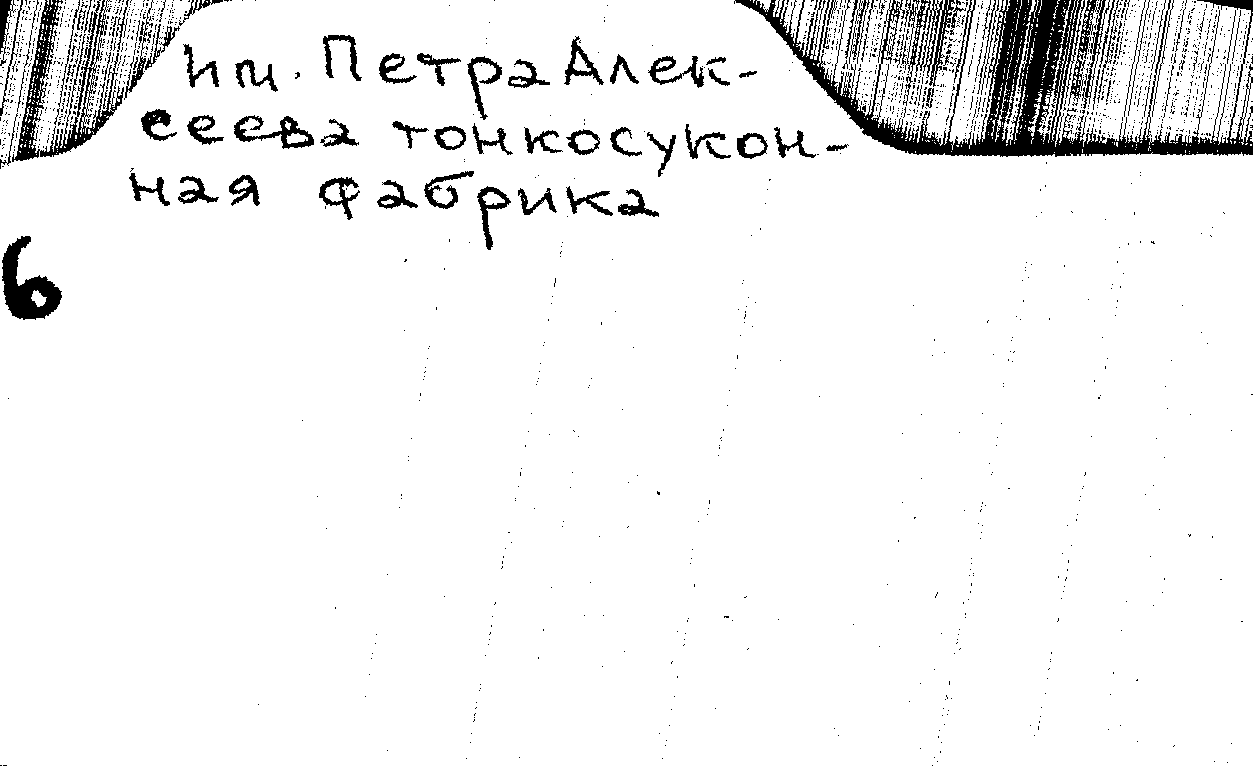 им. Петра Алек-
сеева тонкосукон-
ная фабрика
6